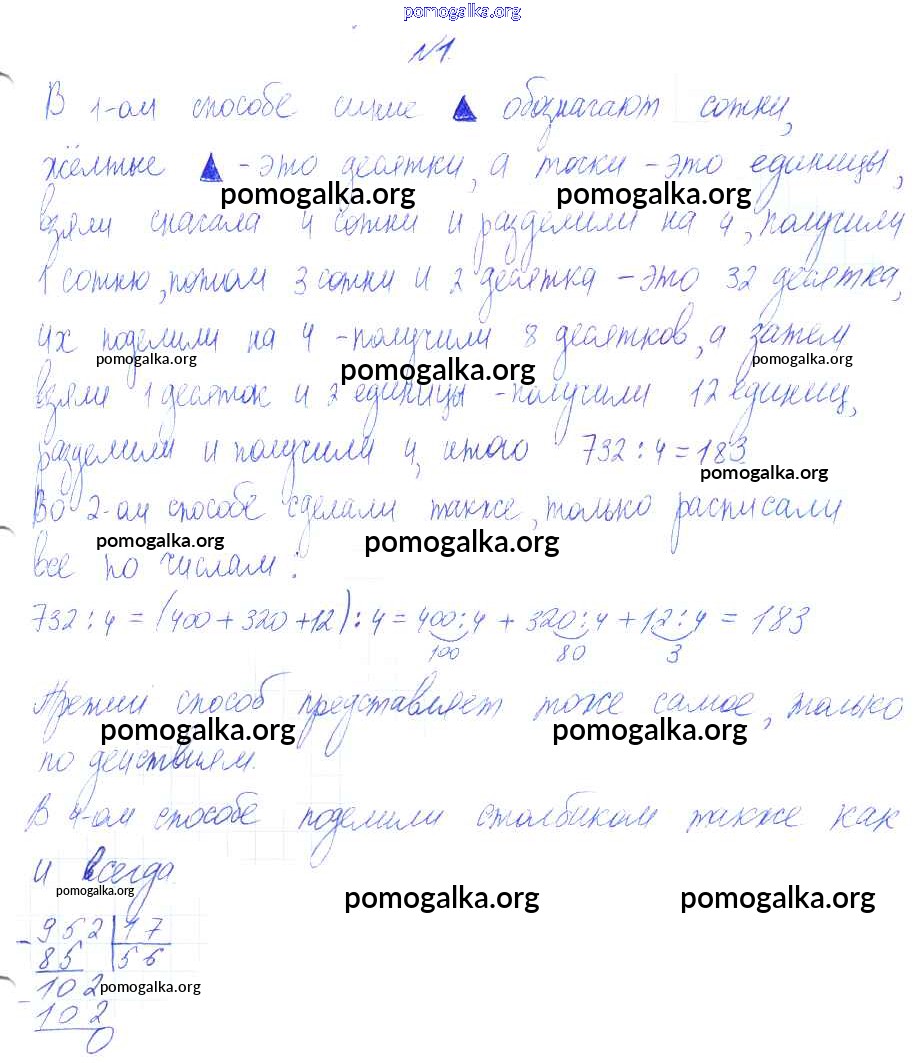 pomogalka.org
№1.
В 1-ом способе синие обозначают сотни,
жёлтые - это десятки, а точки - это единицы,
pomogalka.org pomogalka.org
взяли сначала 4 сотни и разделили на 4, получили
1 сотню, потом 3 сотни и 2 десятка - это 32 десятка,
их поделили на 4 - получили 8 десятков, а затем
pomogalka.org pomogalka.org pomogalka.org
взяли 1 десяток и 2 единицы - получили 12 единиц,
разделили и получили 4, итого 732 : 4 = 183
pomogalka.org
Во 2-ом способе сделали также, только расписали
pomogalka.org pomogalka.org
все по числам:
732 : 4 = (400 + 320 + 12) : 4 = 400 : 4 + 320 : 4 + 12 : 4 = 183
100 80 3
Третий способ представляет тоже самое, только
pomogalka.org pomogalka.org
по действиям.
В 4-ом способе поделили столбиком также как
и всегда.
pomogalka.org pomogalka.org pomogalka.org
- 952 | 17
85 | 56
102 pomogalka.org
- 102
0